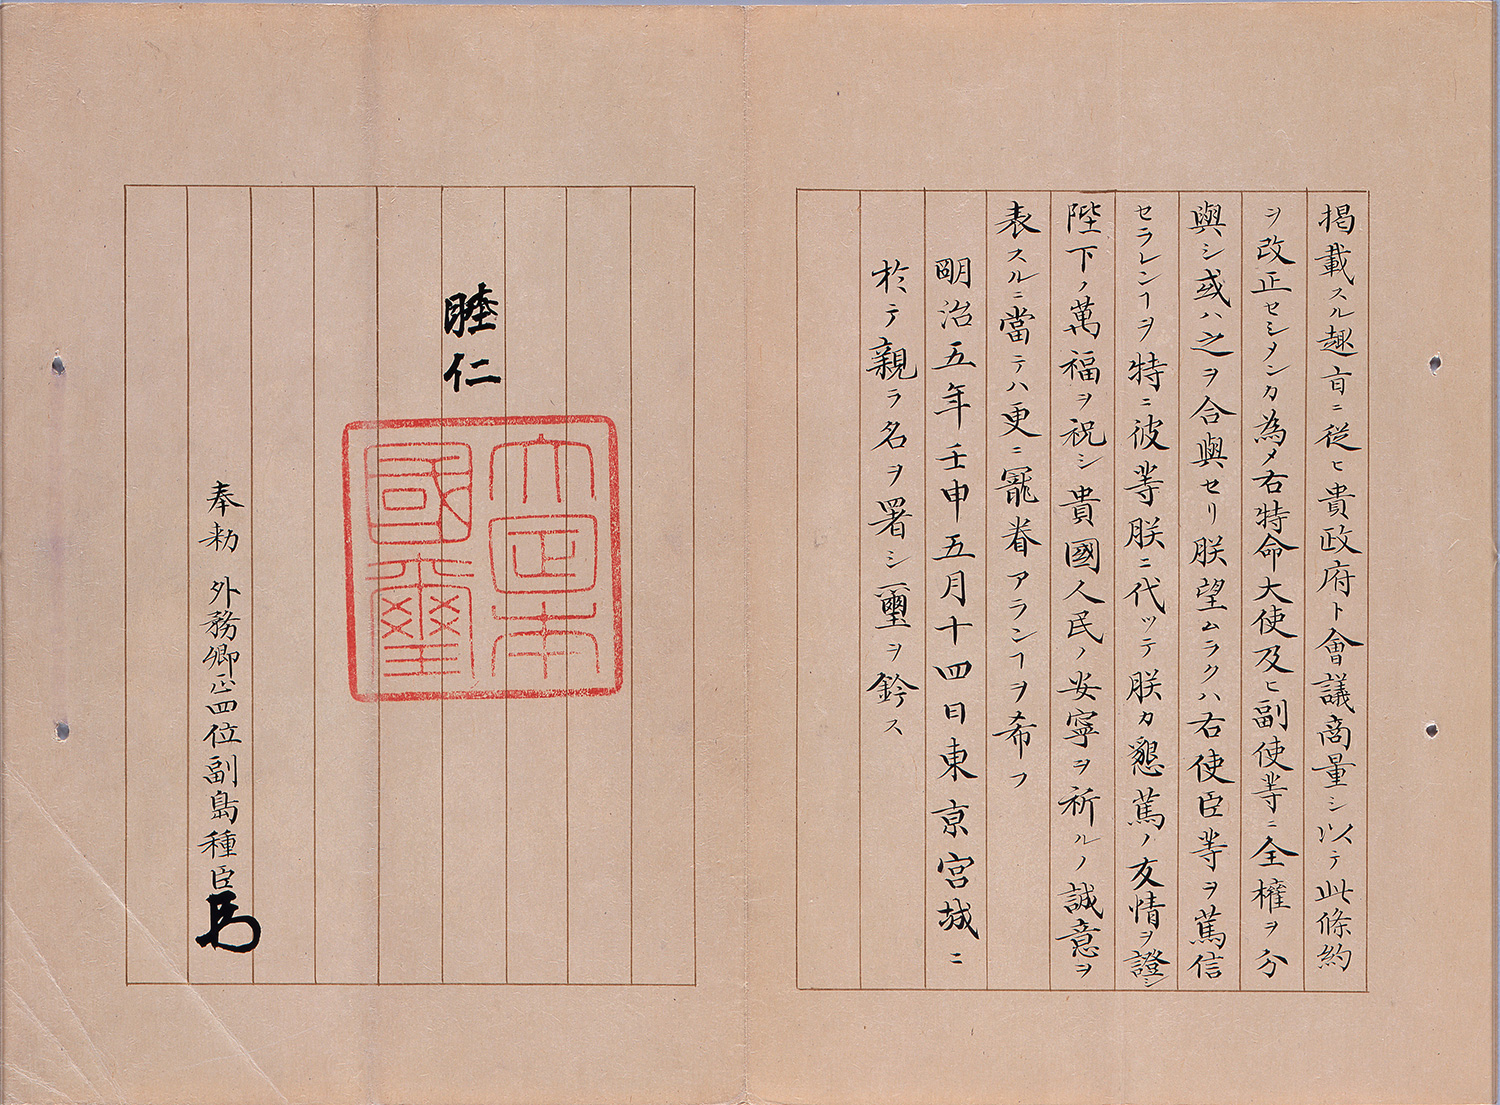 掲載スル趣旨ニ従ヒ貴政府ト會議商量シ以テ此條約
ヲ改正セシメンカ為メ右特命大使及ヒ副使等ニ全權ヲ分
與シ或ハ之ヲ合與セリ朕望ムラクハ右使臣等ヲ篤信
セラレンヿヲ特ニ彼等朕ニ代ツテ朕カ懇篤ノ友情ヲ證シ
陛下ノ萬福ヲ祝シ貴國人民ノ安寧ヲ祈ルノ誠意ヲ
表スルニ當テハ更ニ寵眷アランヿヲ希フ
明治五年壬申五月十四日東京宮城ニ
於テ親ラ名ヲ署シ璽ヲ鈐ス
睦仁
大日本
國璽
奉勅 外務卿正四位副島種臣